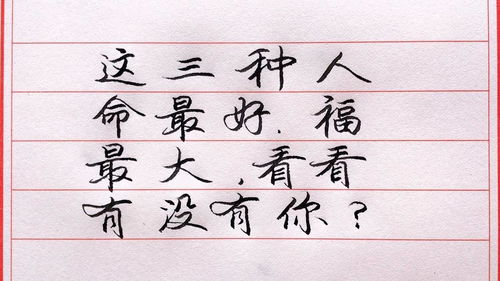 这三种人
命最好.福
最大,看看
有没有你?